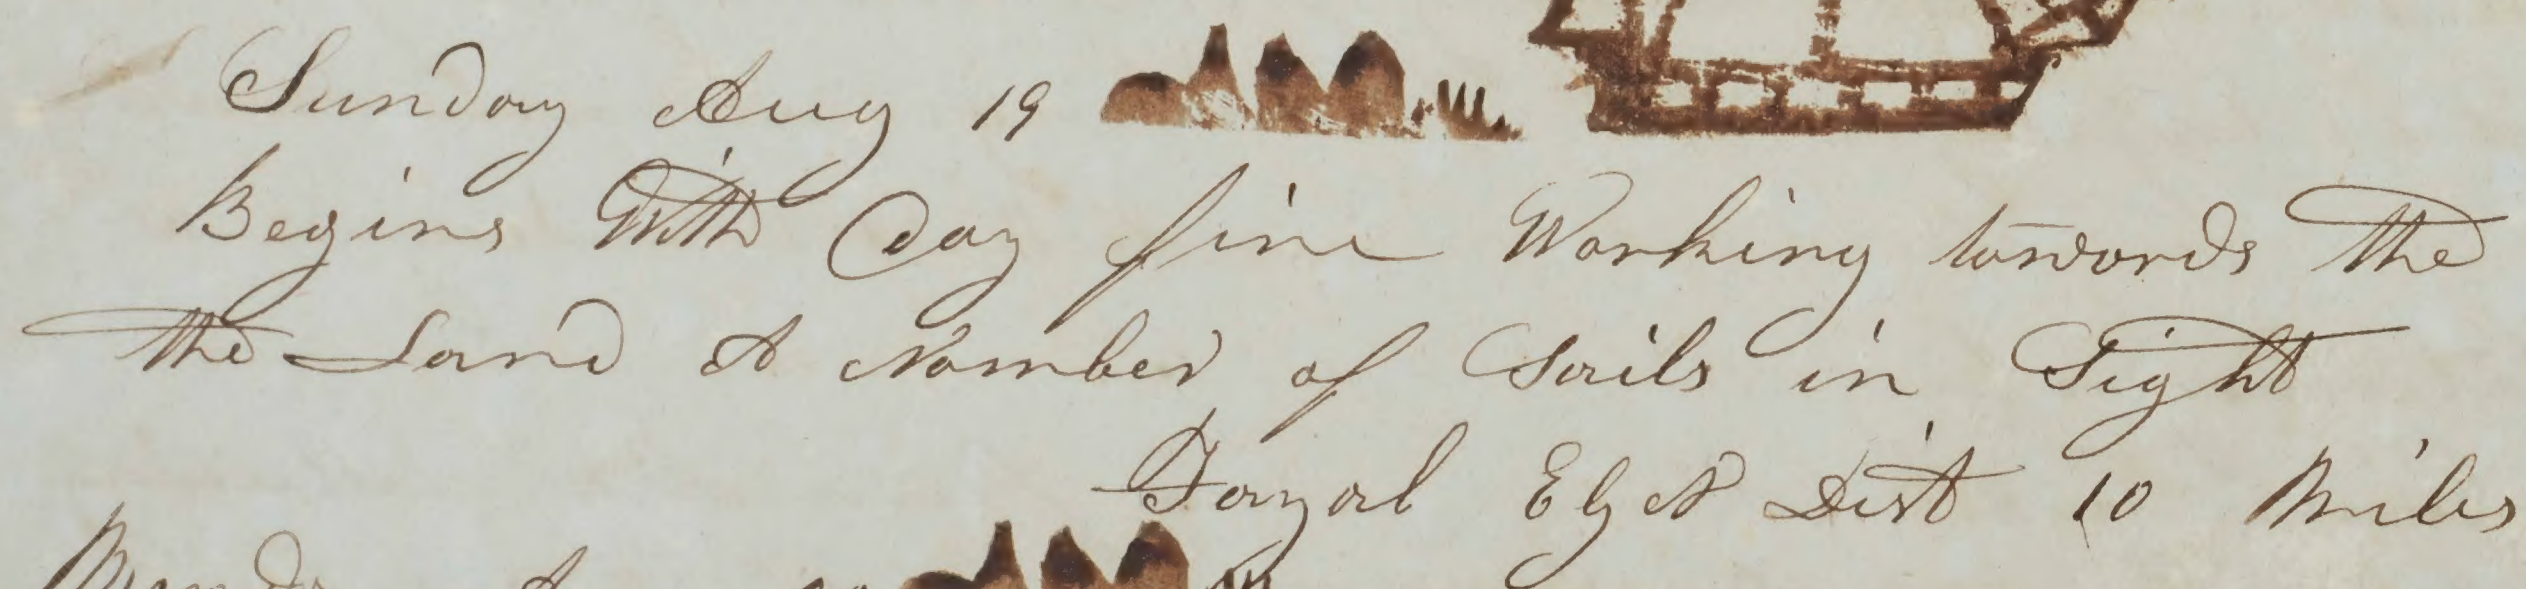 Sunday Aug 19
Begins With Day fine Working towords the
the Land A Nomber of Sails in Sight
Fayal E by N Dist 10 Miles
Monday